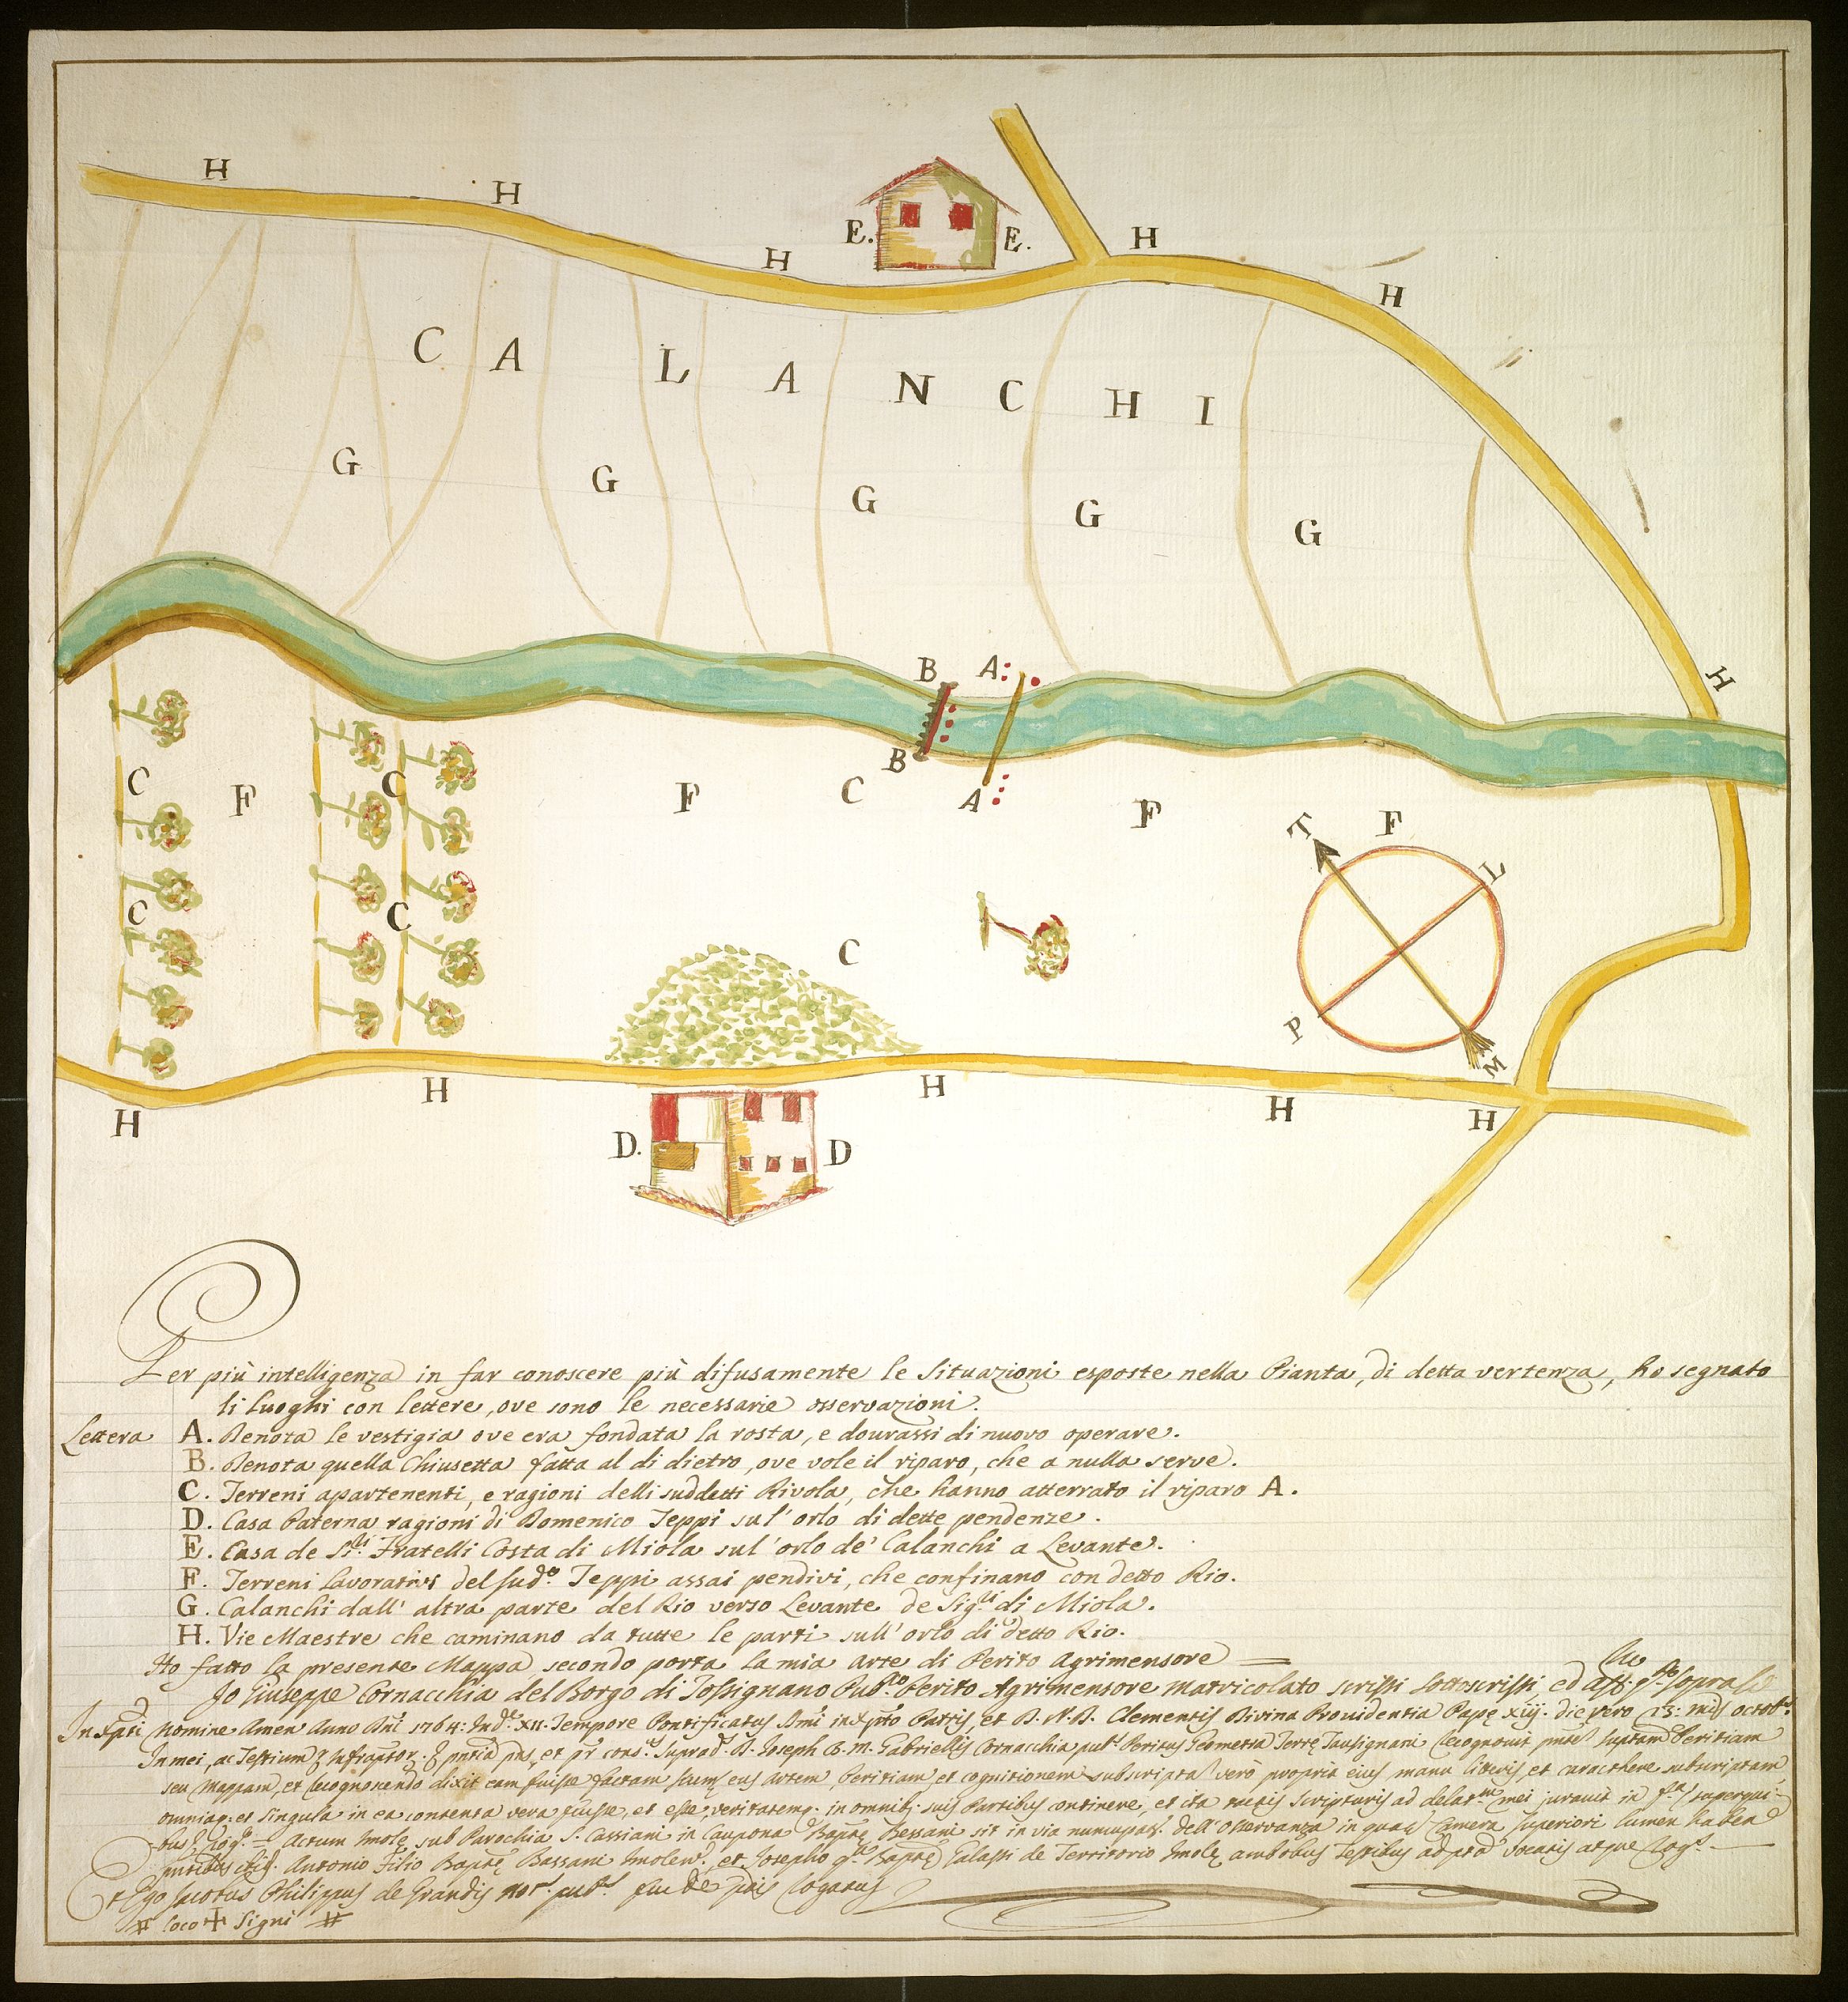 H
H
H
E.
E.
H
H
C A L A N C H I
G
G
G
G
G
H
B
A
B
A
C
F
C
F
C
F
F
T
L
P
M
C
C
C
H
H
H
H
H
D.
D
Per più intelligenza in far conoscere più difusamente le Situazioni esposte nella Pianta, di detta vertenza, ho segnato
li luoghi con lettere, ove sono le necessarie osservazioni.
Lettera A. Denota le vestigia ove era fondata la rosta, e dourassi di nuovo operare.
B. Denota quella Chiusetta fatta al di dietro, ove vole il riparo, che a nulla serve.
C. Terreni apartenenti, e ragioni delli suddetti Rivola, che hanno atterrato il riparo A.
D. Casa Paterna ragioni di Domenico Teppi sul' orlo di dette pendenze.
E. Casa de Sig.li Fratelli Costa di Miola sul' orlo de' Calanchi a Levante.
F. Terreni Lavorativi del sud.o Teppi assai pendivi, che confinano con detto Rio.
G. Calanchi dall' altra parte del Rio verso Levante de Sig.li di Miola.
H. Vie Maestre che caminano da tutte le parti sull' orlo di detto Rio.
Ho fatto la presente Mappa secondo porta la mia arte di Perito Agrimensore
Io Giuseppe Cornacchia del Borgo di Tossignano Pub.co Perito Agrimensore matricolato scrissi sottoscrissi ed
In Xpti nomine Amen Anno Dni 1764: Ind.e XII. Tempore Pontificatus Dmi in Xpto Patris, et D. N. D. Clementis Divina Providentia Pape XIII. die vero 13: octob.
Joseph Gabriellis Cornacchia pub.s Peritus Geometra Terre Tausignani recognovit
seu Mappam, et recognoscendo dixit eam fuisse factam eius Artem, Peritiam, et cognitionem subscripta vero propria eius manu literis, et caracthere subscriptam
et singula in ea contenta vera fuisse, et esse, suis Partibus continere, et ita tactis scripturis ad delat.m mei juravit in
Actum Imole sub Parochia S. Cassiani in Caupona Bessani sit in via nuncupat. dell'Osservanza in Camera superiori lumen
Antonio Filio Bassani et Josepho Galassi de Territorio Imole ambobus Testibus vocatis atque
Ego Jacobus Philippus de Grandis Not. pub.s
# Loco + Signi #